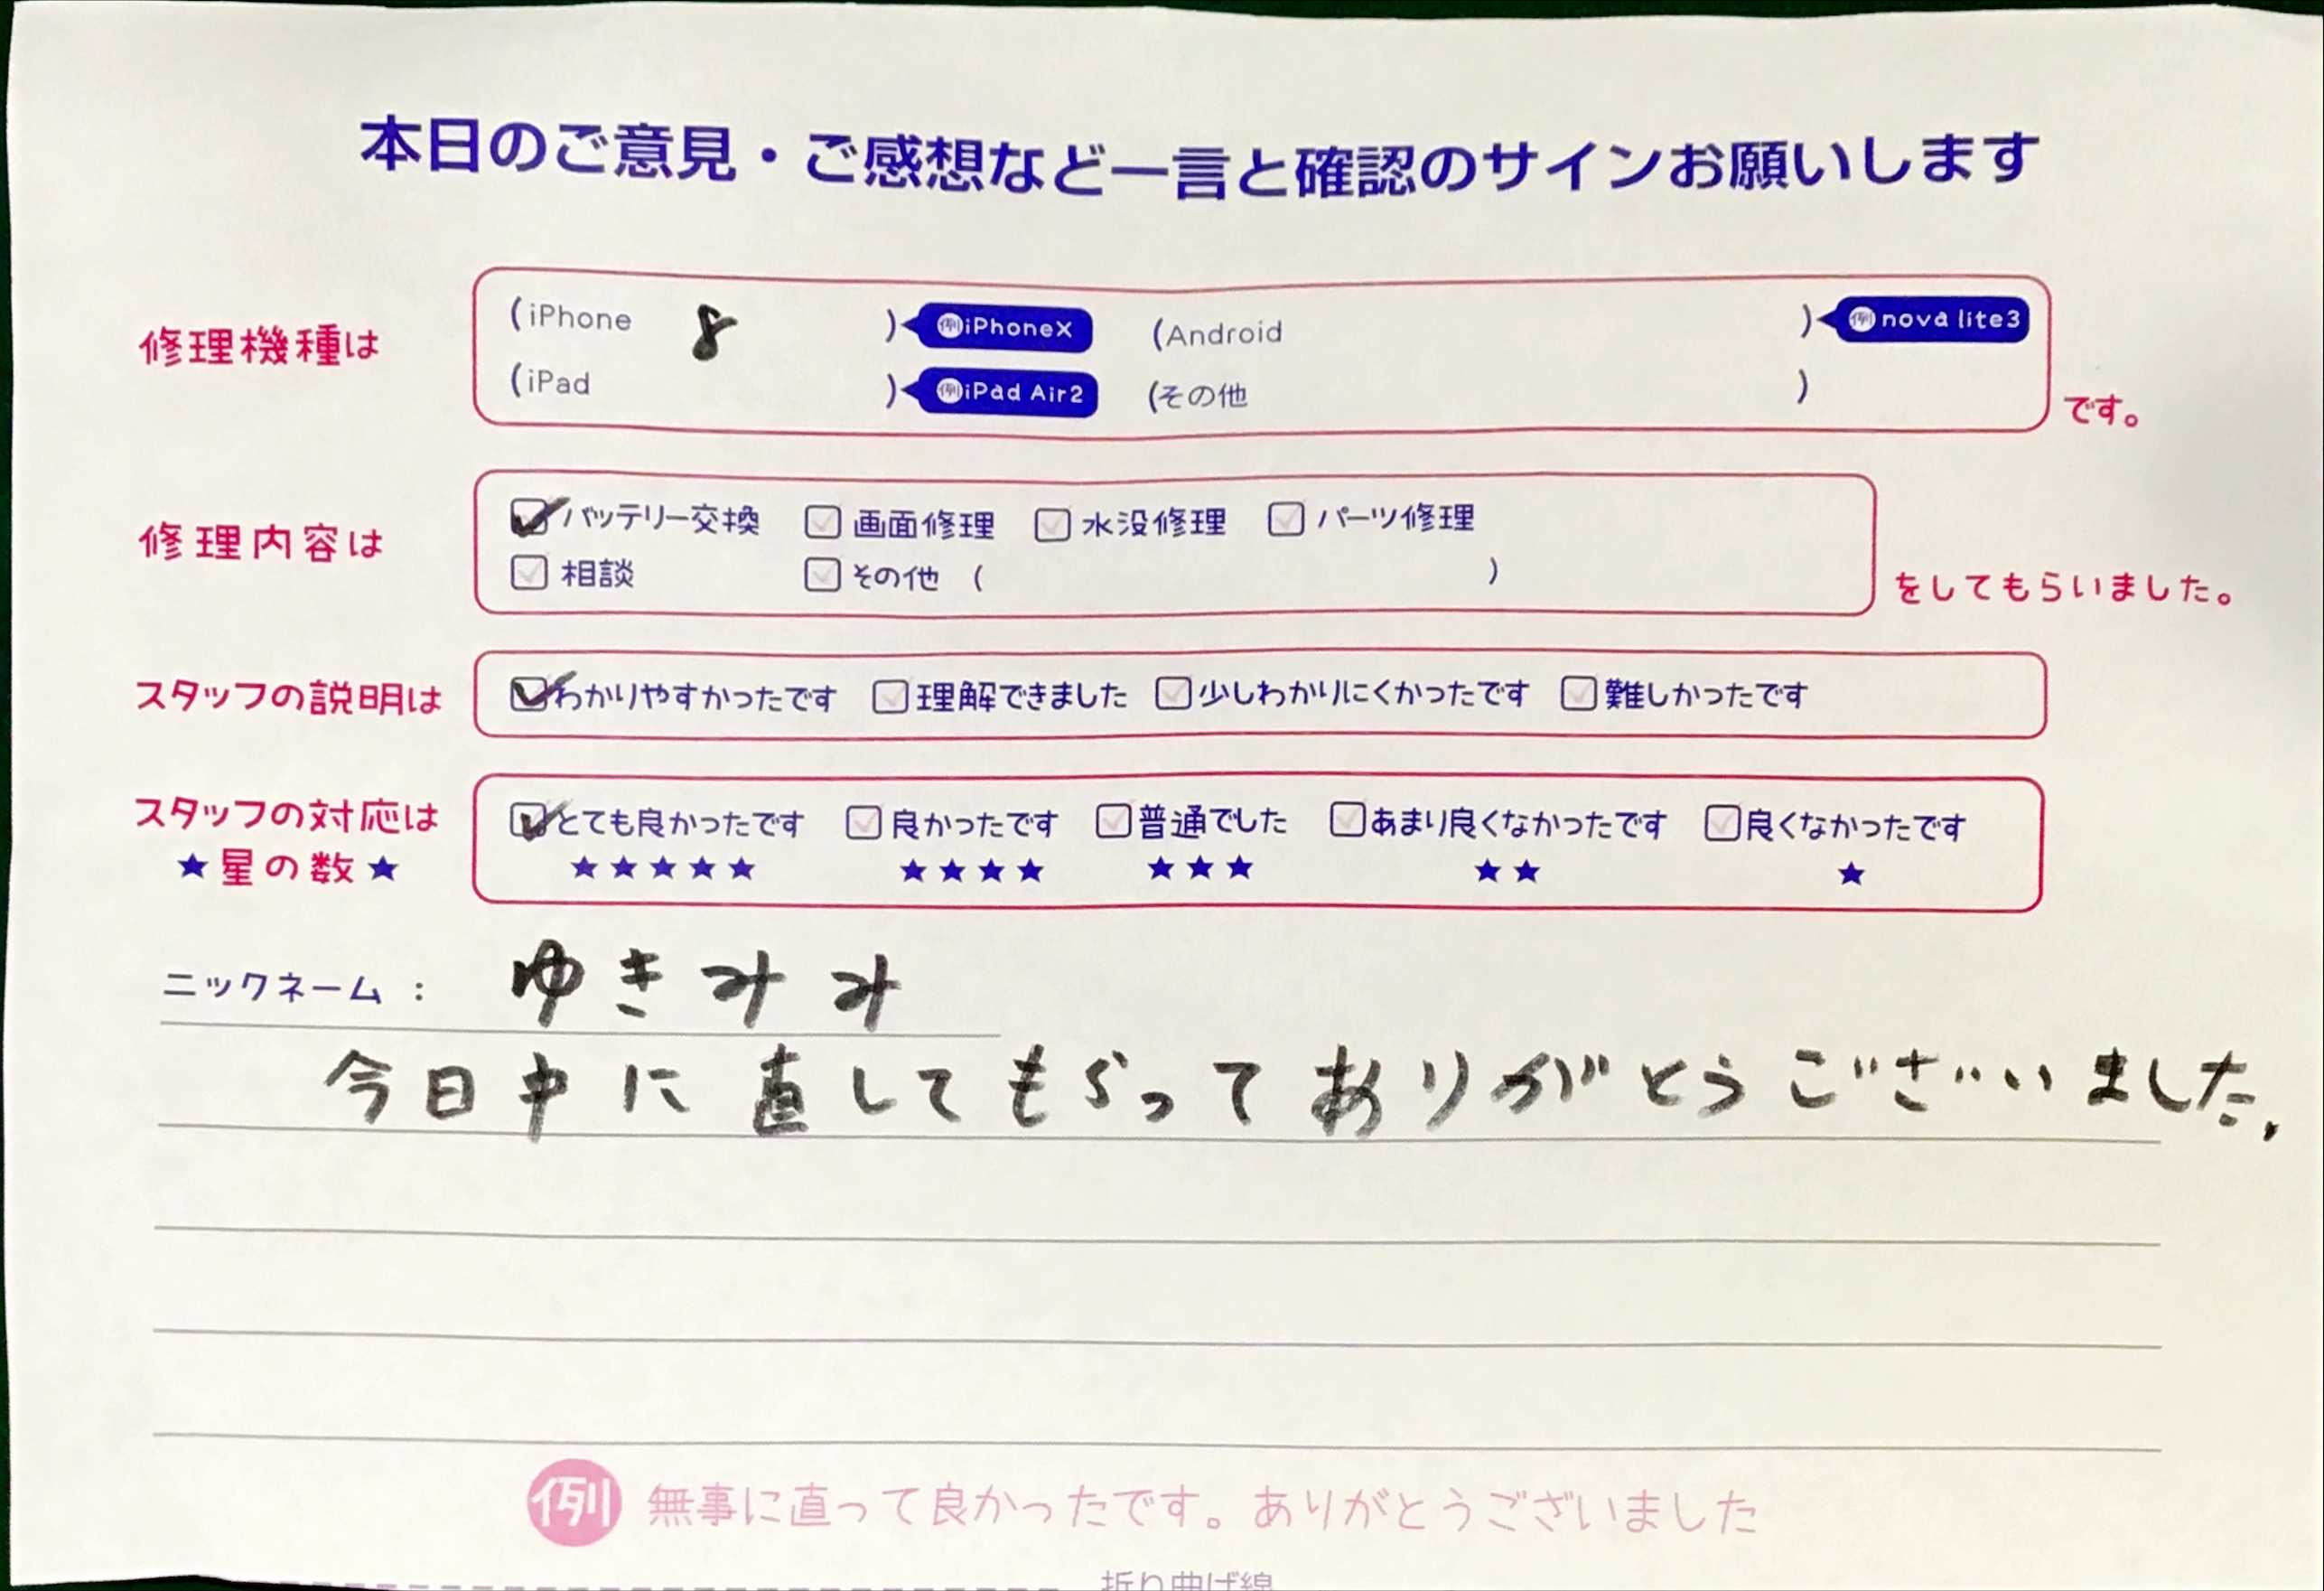 本日のご意見・ご感想など一言と確認のサインお願いします
修理機種は (iPhone 8 ) 例iPhoneX (Android ) 例nova lite3
(iPad ) 例iPad Air2 (その他 ) です。
修理内容は バッテリー交換 画面修理 水没修理 パーツ修理
相談 その他 ( ) をしてもらいました。
スタッフの説明は わかりやすかったです 理解できました 少しわかりにくかったです 難しかったです
スタッフの対応は とても良かったです 良かったです 普通でした あまり良くなかったです 良くなかったです
★星の数★ ★★★★★ ★★★★ ★★★ ★★ ★
ニックネーム： ゆきみみ
今日中に直してもらってありがとうございました,
例 無事に直って良かったです。ありがとうございました
折り曲げ線